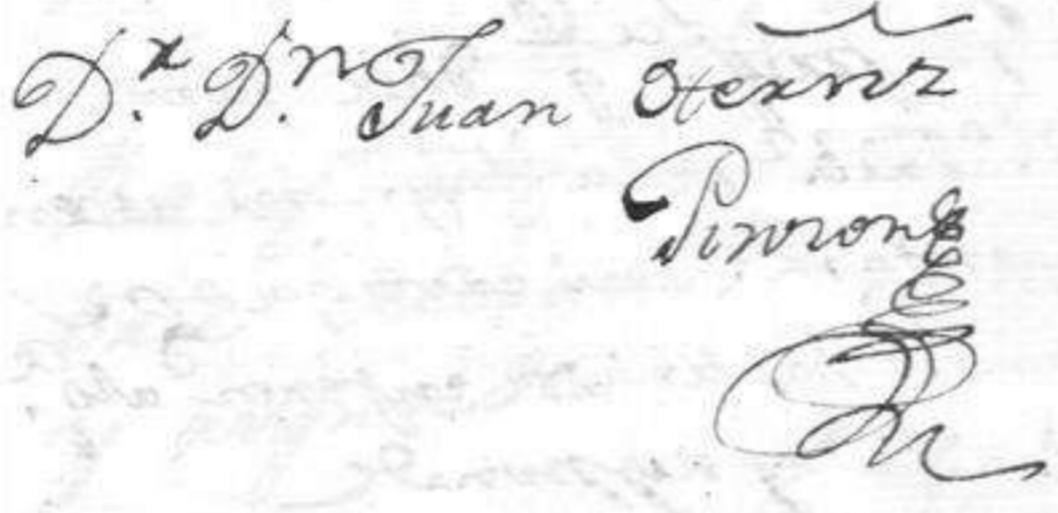 D.r D.n Juan Hernz
Pinzon